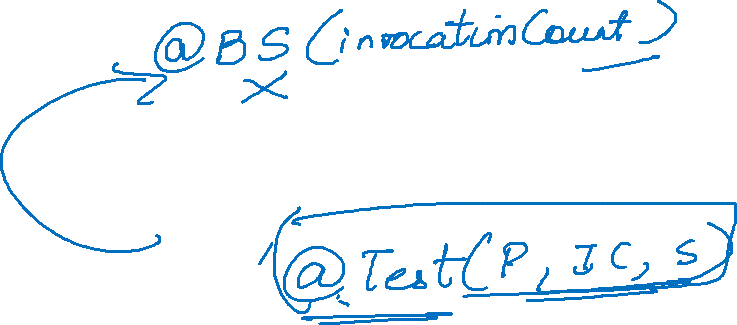 @BS (invocationCount)
@Test(P, IC, S)